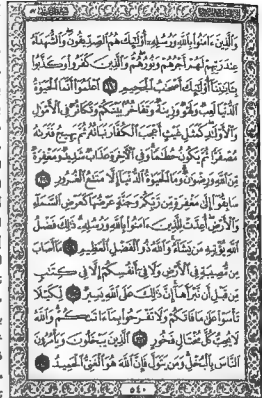 وَالَّذِينَ ءَامَنُوا بِاللَّهِ وَرُسُلِهِ أُولَٰئِكَ هُمُ الصِّدِّيقُونَ وَالشُّهَدَاءُ
عِندَ رَبِّهِمْ لَهُمْ أَجْرُهُمْ وَنُورُهُمْ وَالَّذِينَ كَفَرُوا وَكَذَّبُوا
بِـَٔايَٰتِنَا أُولَٰئِكَ أَصْحَٰبُ الْجَحِيمِ ١٩ اعْلَمُوا أَنَّمَا الْحَيَوٰةُ
الدُّنْيَا لَعِبٌ وَلَهْوٌ وَزِينَةٌ وَتَفَاخُرٌ بَيْنَكُمْ وَتَكَاثُرٌ فِي الْأَمْوَٰلِ
وَالْأَوْلَٰدِ كَمَثَلِ غَيْثٍ أَعْجَبَ الْكُفَّارَ نَبَاتُهُ ثُمَّ يَهِيجُ فَتَرَىٰهُ
مُصْفَرًّا ثُمَّ يَكُونُ حُطَٰمًا وَفِي الْـَٔاخِرَةِ عَذَابٌ شَدِيدٌ وَمَغْفِرَةٌ
مِّنَ اللَّهِ وَرِضْوَٰنٌ وَمَا الْحَيَوٰةُ الدُّنْيَا إِلَّا مَتَٰعُ الْغُرُورِ ٢٠
سَابِقُوا إِلَىٰ مَغْفِرَةٍ مِّن رَّبِّكُمْ وَجَنَّةٍ عَرْضُهَا كَعَرْضِ السَّمَاءِ
وَالْأَرْضِ أُعِدَّتْ لِلَّذِينَ ءَامَنُوا بِاللَّهِ وَرُسُلِهِ ذَٰلِكَ فَضْلُ
اللَّهِ يُؤْتِيهِ مَن يَشَاءُ وَاللَّهُ ذُو الْفَضْلِ الْعَظِيمِ ٢١ مَا أَصَابَ
مِن مُّصِيبَةٍ فِي الْأَرْضِ وَلَا فِي أَنفُسِكُمْ إِلَّا فِي كِتَٰبٍ
مِّن قَبْلِ أَن نَّبْرَأَهَا إِنَّ ذَٰلِكَ عَلَى اللَّهِ يَسِيرٌ ٢٢ لِّكَيْلَا
تَأْسَوْا عَلَىٰ مَا فَاتَكُمْ وَلَا تَفْرَحُوا بِمَا ءَاتَىٰكُمْ وَاللَّهُ
لَا يُحِبُّ كُلَّ مُخْتَالٍ فَخُورٍ ٢٣ الَّذِينَ يَبْخَلُونَ وَيَأْمُرُونَ
النَّاسَ بِالْبُخْلِ وَمَن يَتَوَلَّ فَإِنَّ اللَّهَ هُوَ الْغَنِيُّ الْحَمِيدُ ٢٤
٥٤٠